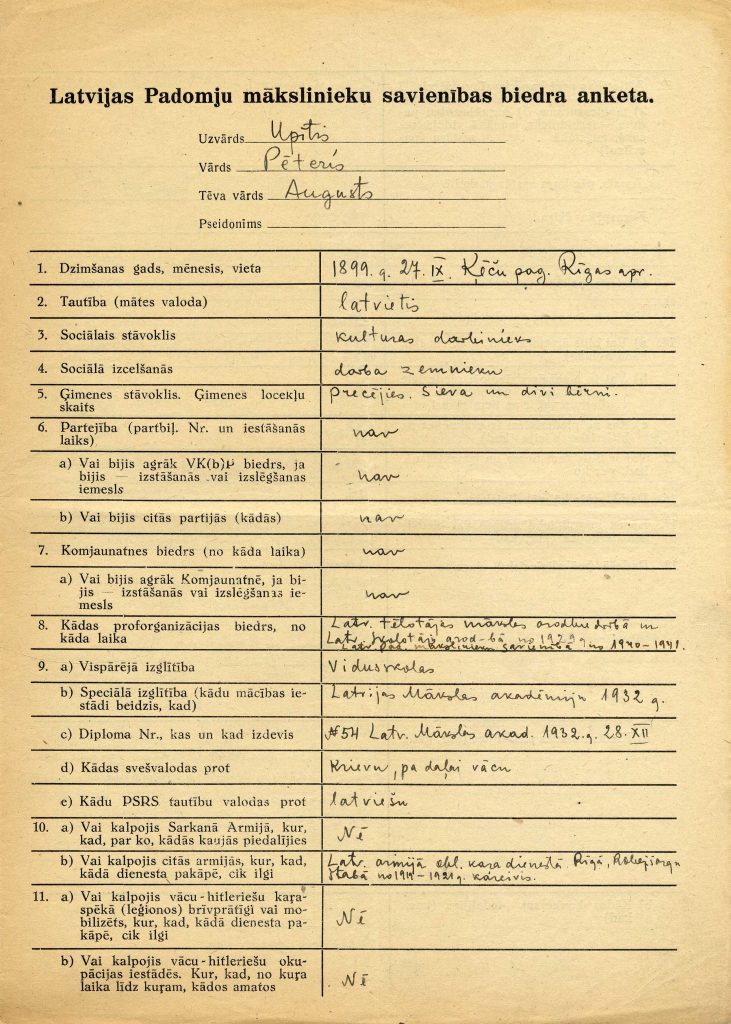 Latvijas Padomju mākslinieku savienības biedra anketa.
Uzvārds Upītis
Vārds Pēteris
Tēva vārds Augusts
Pseidonīms
1. Dzimšanas gads, mēnesis, vieta 1899. g. 27. IX. Ķēču pag. Rīgas apr.
2. Tautība (mātes valoda) latvietis
3. Sociālais stāvoklis kulturas darbinieks
4. Sociālā izcelšanās darba zemnieku
5. Ģimenes stāvoklis. Ģimenes locekļu skaits precējies. Sieva un divi bērni.
6. Partejība (partbiļ. Nr. un iestāšanās laiks) nav
a) Vai bijis agrāk VK(b)P biedrs, ja bijis — izstāšanās vai izslēgšanas iemesls nav
b) Vai bijis citās partijās (kādās) nav
7. Komjaunatnes biedrs (no kāda laika) nav
a) Vai bijis agrāk Komjaunatnē, ja bijis — izstāšanās vai izslēgšanas iemesls nav
8. Kādas proforganizācijas biedrs, no kāda laika Latv. tēlotājas mākslas arodbiedrībā un
Latv. arod-bā no 1929 g.
Latv. pad. mākslinieku savienībā no 1940–1941.
9. a) Vispārējā izglītība Vidusskolas
b) Speciālā izglītība (kādu mācības iestādi beidzis, kad) Latvijas Mākslas akadēmiju 1932 g.
c) Diploma Nr., kas un kad izdevis №54 Latv. Mākslas akad. 1932. g. 28. XII
d) Kādas svešvalodas prot Krievu, pa daļai vācu
e) Kādu PSRS tautību valodas prot latviešu
10. a) Vai kalpojis Sarkanā Armijā, kur, kad, par ko, kādās kaujās piedalījies Nē
b) Vai kalpojis citās armijās, kur, kad, kādā dienesta pakāpē, cik ilgi Latv. armijā obl. kara dienestā Rīgā,
štabā no 1919–1921 g. kareivis.
11. a) Vai kalpojis vācu-hitleriešu karaspēkā (leģionos) brīvprātīgi vai mobilizēts, kur, kad, kādā dienesta pakāpē, cik ilgi Nē
b) Vai kalpojis vācu-hitleriešu okupācijas iestādēs. Kur, kad, no kuŗa laika līdz kuŗam, kādos amatos Nē